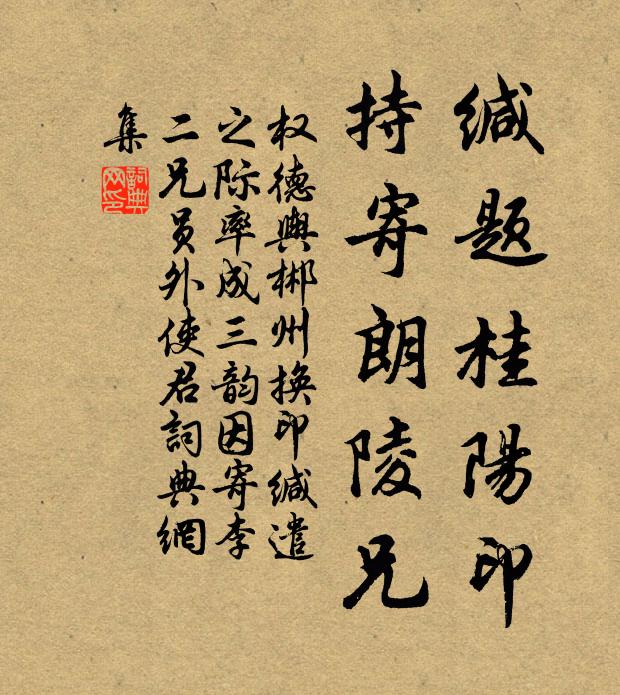 缄题桂陽印
持寄朗陵兄
权德輿郴州换印缄遣
之际率成三韵因寄李
二兄员外使君詞典網
集
詞典
网印